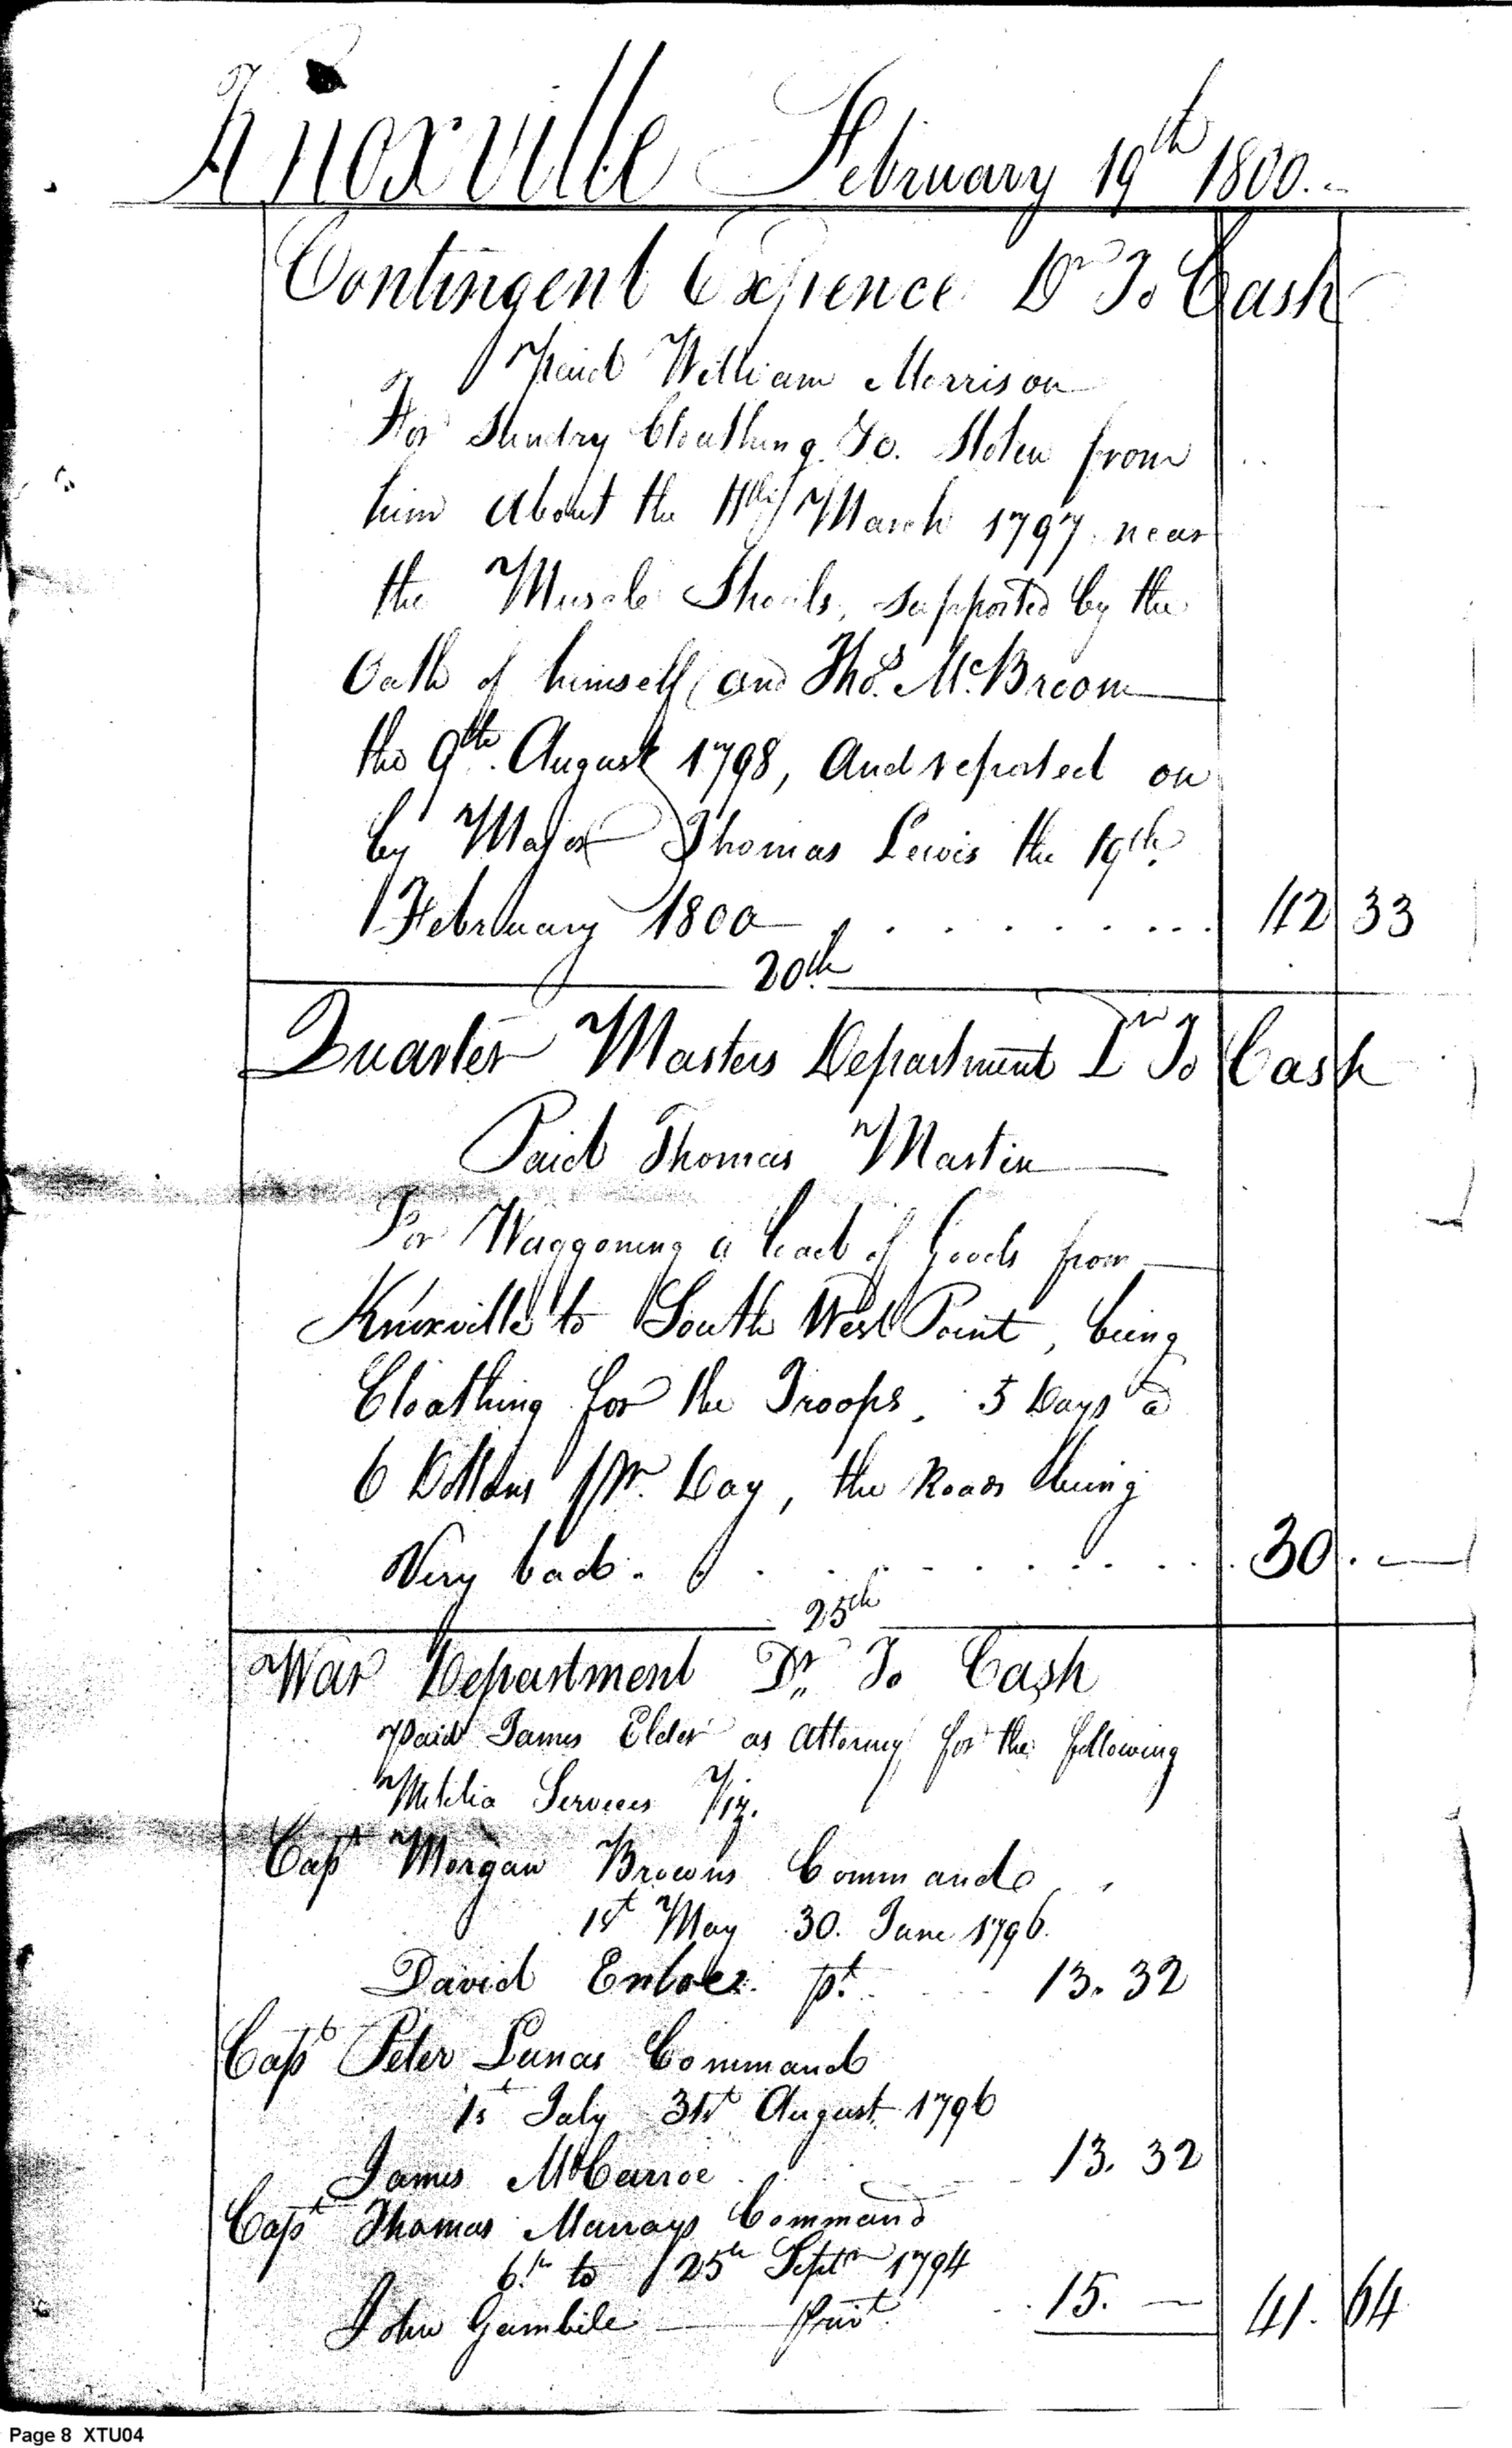 Knoxville February 19th 1800.
Contingent Expence Dr To Cash
Paid William Morrison
For Sundry Cloathing &c. Stolen from
him about the 11th of March 1797 near
the Muscle Shoals, supported by the
Oath of himself and Thos. McBroom
the 9th August 1798, And reported on
by Major Thomas Lewis the 19th
February 1800 . . . . . . . . 42 33
20th
Quarter Masters Department Dr To Cash
Paid Thomas Martin
For Waggoning a load of Goods from
Knoxville to South West Point, being
Cloathing for the Troops, 5 Days a
6 Dollars pr. Day, the Roads being
Very bad . . . . . . . . 30. —
25th
War Department Dr. To Cash
Paid James Elder as Attorney for the following
Militia Services Viz.
Capt Morgan Browns Command
1st May 30. June 1796.
David Enloes pt. 13. 32
Capt Peter Lunas Command
1st July 31st August 1796
James 13. 32
Capt Thomas Murrays Command
6th to 25th Septr 1794
John Gambile — Privt. 15. — 41. 64
Page 8 XTU04